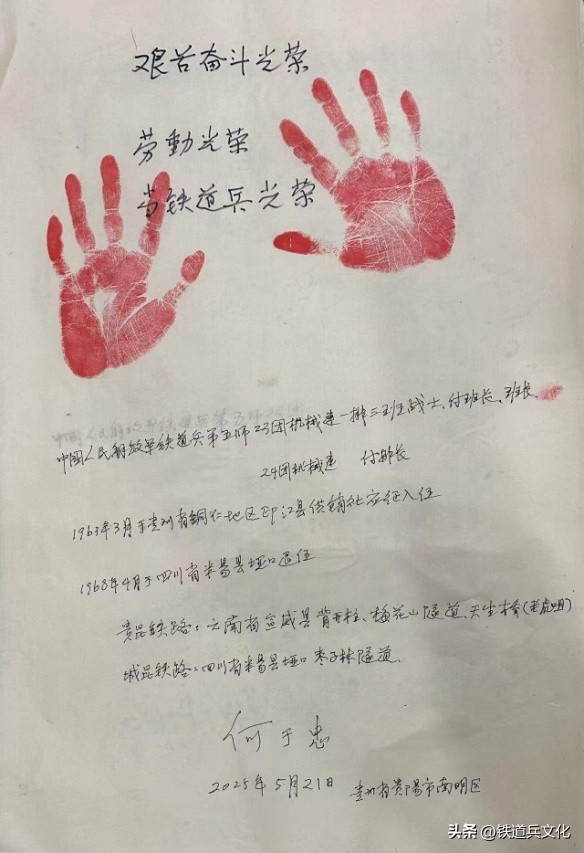 艰苦奋斗光荣
劳動光荣
当铁道兵光荣
中国人民解放军铁道兵第五师23团机械连一排三班战士、付班长、班长、
24团机械连 付排长
1963年3月于贵州省铜仁地区印江县供销社应征入伍
1968年4月于四川省米易县垭口退伍
贵昆铁路：云南省宣威县背开柱、梅花山隧道、天生桥(老虎咀)
城昆铁路：四川省米易县垭口枣子林隧道、
何于忠
2025年5月21日 贵州省贵阳市南明区
头条 @铁道兵文化